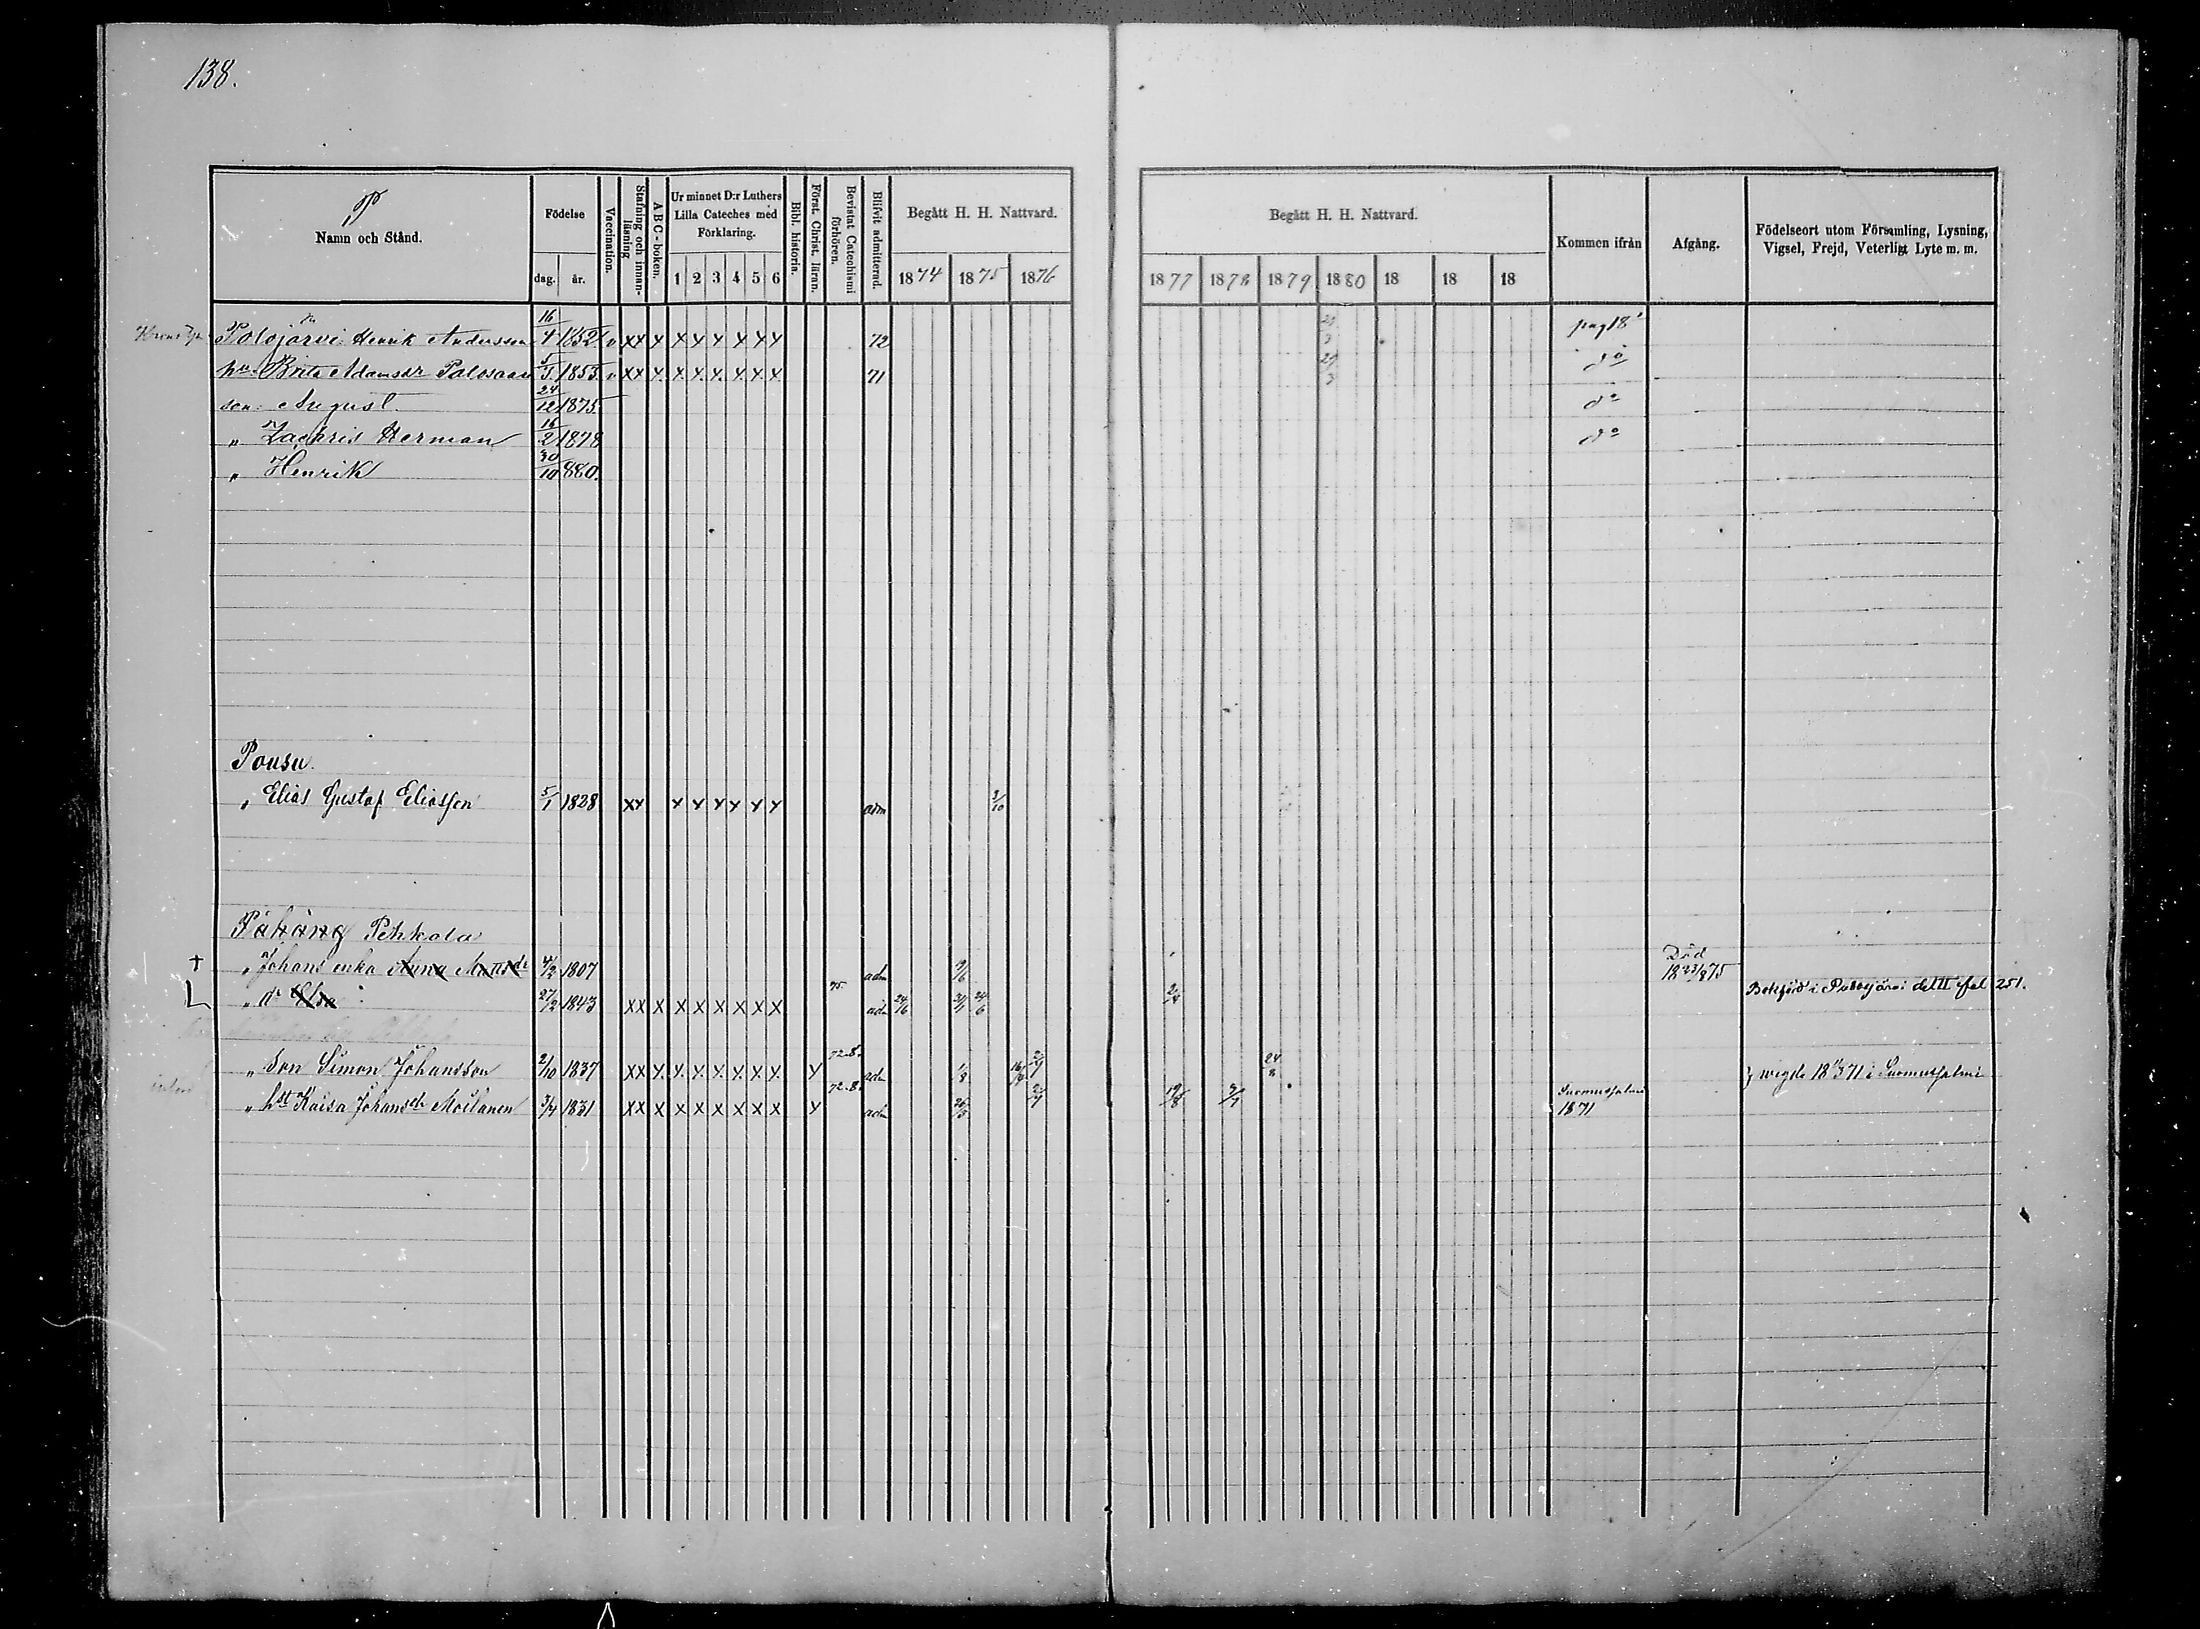 138.
P
Namn och Stånd.
Födelse
dag. år.
Vaccination.
Stafning och innanläsning
A B C-boken.
Ur minnet D:r Luthers Lilla Cateches med Förklaring.
1 2 3 4 5 6
Bibl. historia.
Först. Christ. läran.
Bevistat Catechismi förhören.
Blifvit admitterad.
Begått H. H. Nattvard.
1874 1875 1876
Begått H. H. Nattvard.
1877 1878 1879 1880 18 18 18
Kommen ifrån
Afgång.
Födelseort utom Församling, Lysning, Vigsel, Frejd, Veterligt Lyte m. m.
Polojärvi Henrik Andersson 16/4 1852 v xx x x x x x x x 72 pag 18
hu. Brita Adamsdr Palosaari 5/1 1855 v xx x x x x x x x 71 do
son: August 24/12 1875 do
„ Zachris Herman 16/2 1878 do
„ Henrik 30/10 880.
Pousu.
„ Elias Gustaf Eliasson 5/1 1828 xx x x x x x x adm 3/10
Pähäng Pehkola
+ „ Johans enka Anna Mattsdr 4/2 1807 adm 9/6 Död 18 23/8 75
„ dr Elsa 27/2 1843 xx x x x x x x x 75 adm 24/6 24/6 2/8 Bokförd i Pudasjärvi del II pal 251.
„ Son Simon Johansson 2/10 1837 xx x x x x x x x x 72-8. adm 1/8 24/8 } wigde 18 71 i Suomusjalmi
„ hst Kaisa Johansdr Moilanen 3/4 1831 xx x x x x x x x x 72-8. adm 26/3 19/8 Suomusjalmi 1871